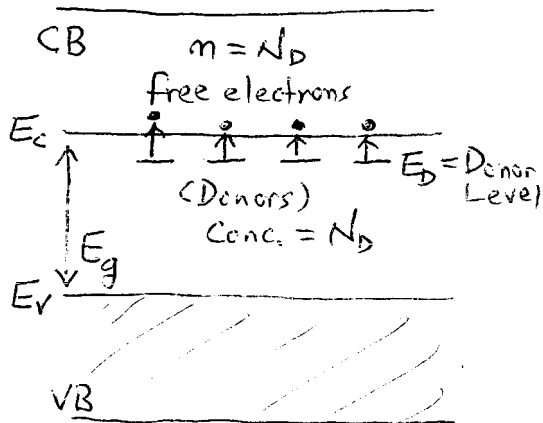 CB
n = N_D
free electrons
E_c
E_D = Donor
Level
(Donors)
Conc. = N_D
E_g
E_v
VB